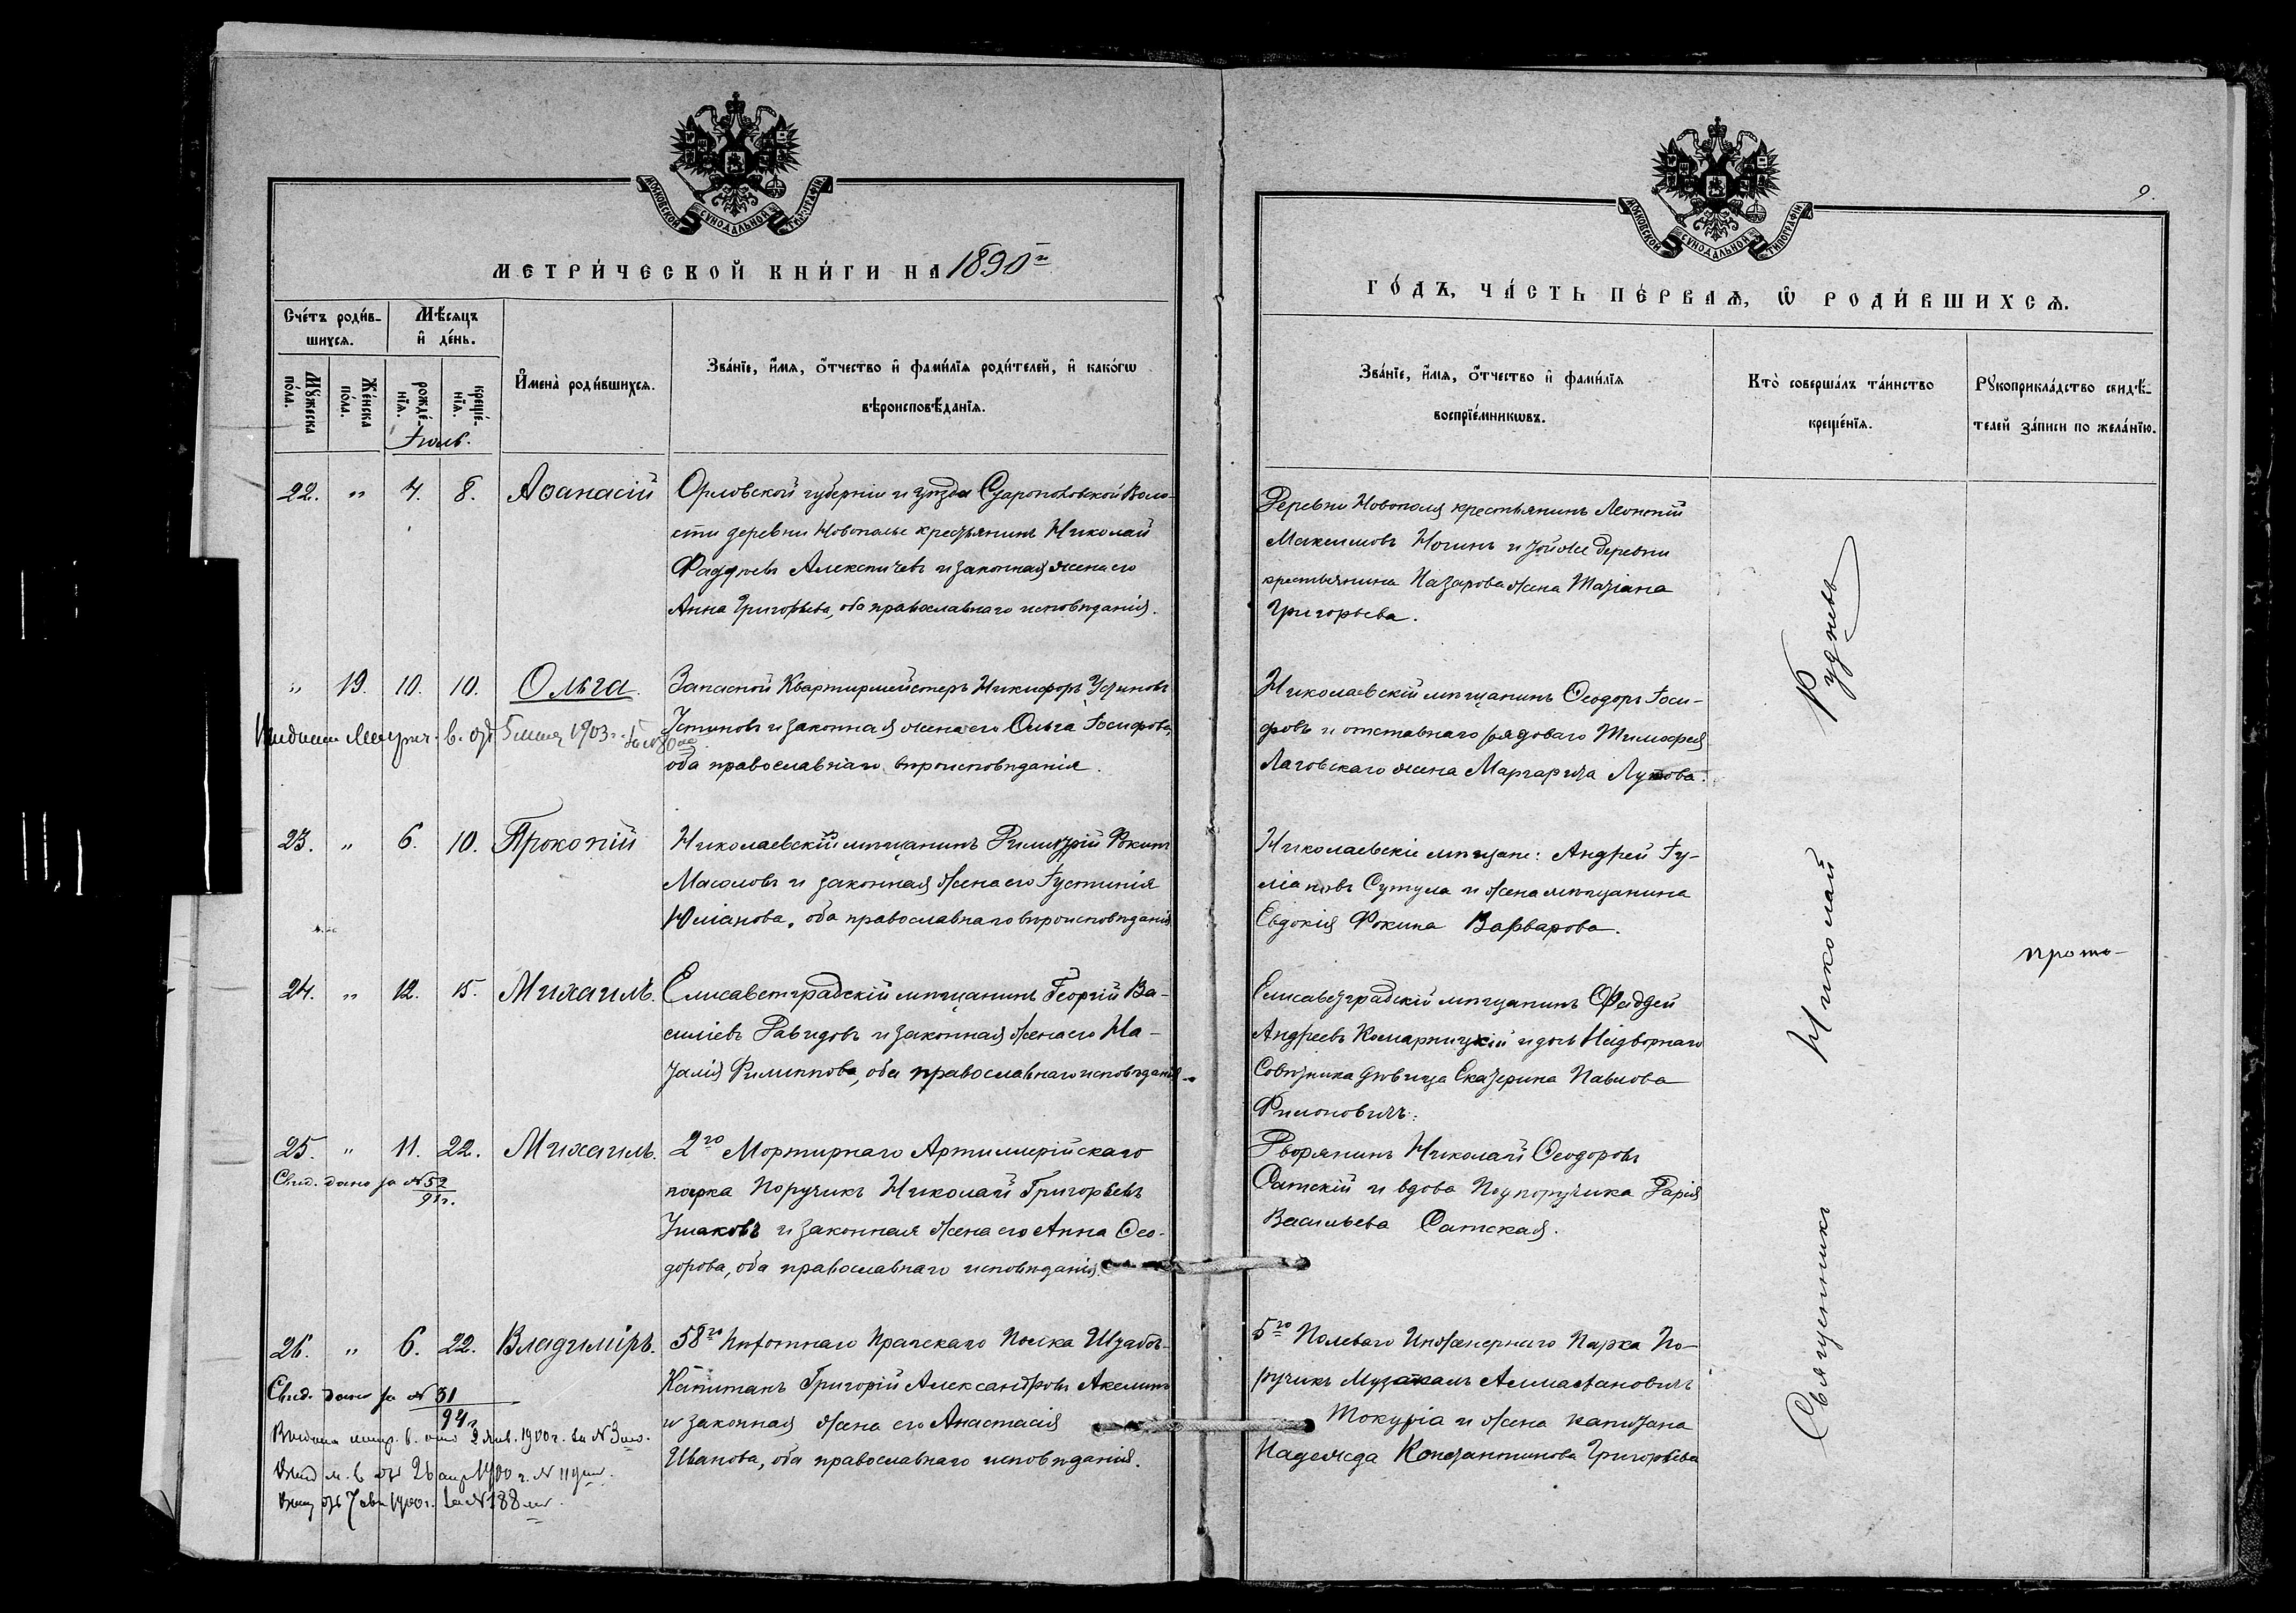 МОСКОВСКОЙ СѴНОДАЛЬНОЙ ТИПОГРАФІИ
МЕТРИ́ЧЕСКОЙ КНИ́ГИ НА 1890й
Сче́тъ роди́в-
шихся.
Мѣ́сяцъ
и҆ де́нь.
Мꙋ́жеска
по́ла.
Же́нска
по́ла.
рожде́-
нїѧ.
креще́-
нїѧ.
И҆мена̀ роди́вшихся.
Зва́нїе, и҆́мѧ, ѻ҆́тчество и҆ фами́лїѧ роди́телей, и҆ како́гѡ
вѣроисповѣ́данїѧ.
Іюль.
22. " 4. 8. Аѳанасій Орловской губерніи и уѣзда Воло-
сти деревни Новополье крестьянинъ Николай
Фаддѣевъ и законная жена его
Анна Григорьева, оба православнаго исповѣданія.
" 19. 10. 10. Ольга. Запасной Квартирмейстеръ Никифоръ Устиновъ
Устиновъ и законная жена его Ольга Іосифова,
оба православнаго вѣроисповѣданія.
1903 г.
23. " 6. 10. Прокопій Николаевскій мѣщанинъ Димитрій Фокинъ
Масловъ и законная жена его Іустинія
Юліанова, оба православнаго вѣроисповѣданія
24. " 12. 15. Михаилъ. Елисаветградскій мѣщанинъ Георгій Ва-
силіевъ Давидовъ и законная жена его На-
талія Филиппова, оба православнаго исповѣданія.
25. " 11. 22. Михаилъ. 2го Мортирнаго Артиллерійскаго
парка Поручикъ Николай Григорьевъ
Ушаковъ и законная жена его Анна Ѳео-
дорова, оба православнаго исповѣданія.
Свид. дано за № 52
91 г.
26. " 6. 22. Владиміръ. 58го Пѣхотнаго Прагскаго Полка Штабсъ-
Капитанъ Григорій Александровъ Акелинъ
и законная жена его Анастасія
Иванова, оба православнаго исповѣданія.
Свид. дано за № 31
94 г.
Выдана метр. в. отъ 2 янв. 1900 г. за № 3
м. в. отъ 26 апр 1900 г. № 119
отъ 7 1900 г. за № 188
9.
МОСКОВСКОЙ СѴНОДАЛЬНОЙ ТИПОГРАФІИ
ГО́ДЪ, ЧА́СТЬ ПЕ́РВАѦ, Ѽ РОДИ́ВШИХСѦ.
Зва́нїе, и҆́мѧ, ѻ҆́тчество и҆ фами́лїѧ
воспрїе́мникѡвъ.
Кто̀ соверша́лъ та́инство
креще́нїѧ.
Рꙋкоприкла́дство свидѣ́-
телей за́писи по жела́нїю.
Деревни Новополя крестьянинъ Леонтій
Максимовъ Ногинъ и той же деревни
крестьянина Назарова жена Татіана
Григорьева.
Николаевскій мѣщанинъ Ѳеодоръ Іоси-
фовъ и отставнаго рядоваго Тимоѳея
Лаговскаго жена Маргарита
Николаевскіе мѣщане: Андрей Іу-
ліановъ Сутула и жена мѣщанина
Евдокія Фокина Варварова.
Елисаветградскій мѣщанинъ Фаддей
Андреевъ Комарницкій и дочь Надворнаго
Совѣтника дѣвица Екатерина Павлова
Филоновичъ.
Дворянинъ Николай Ѳеодоровъ
Сатскій и вдова Подпоручика Дарія
Васильева Сатская.
5го Полеваго Инженернаго Парка По-
ручикъ
Токурія и жена капитана
Надежда Константинова Григорьева
Священникъ Николай Рудневъ
прото-